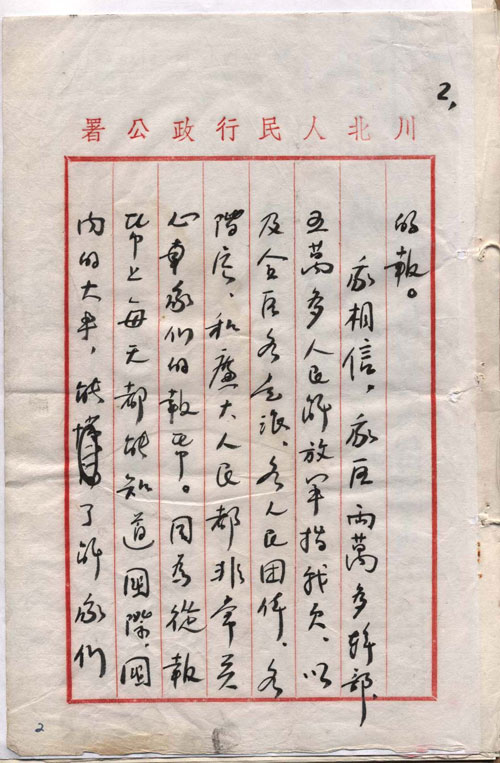 2,
川北人民行政公署
的報。
我相信，我区兩萬多幹部、
五萬多人民解放军指战员、以
及全区各党派、各人民团体、各
階层、和廣大人民都非常关
心我们的報帋。因为從報
帋上每天都能知道國際、國
内的大事，能了解我们
2